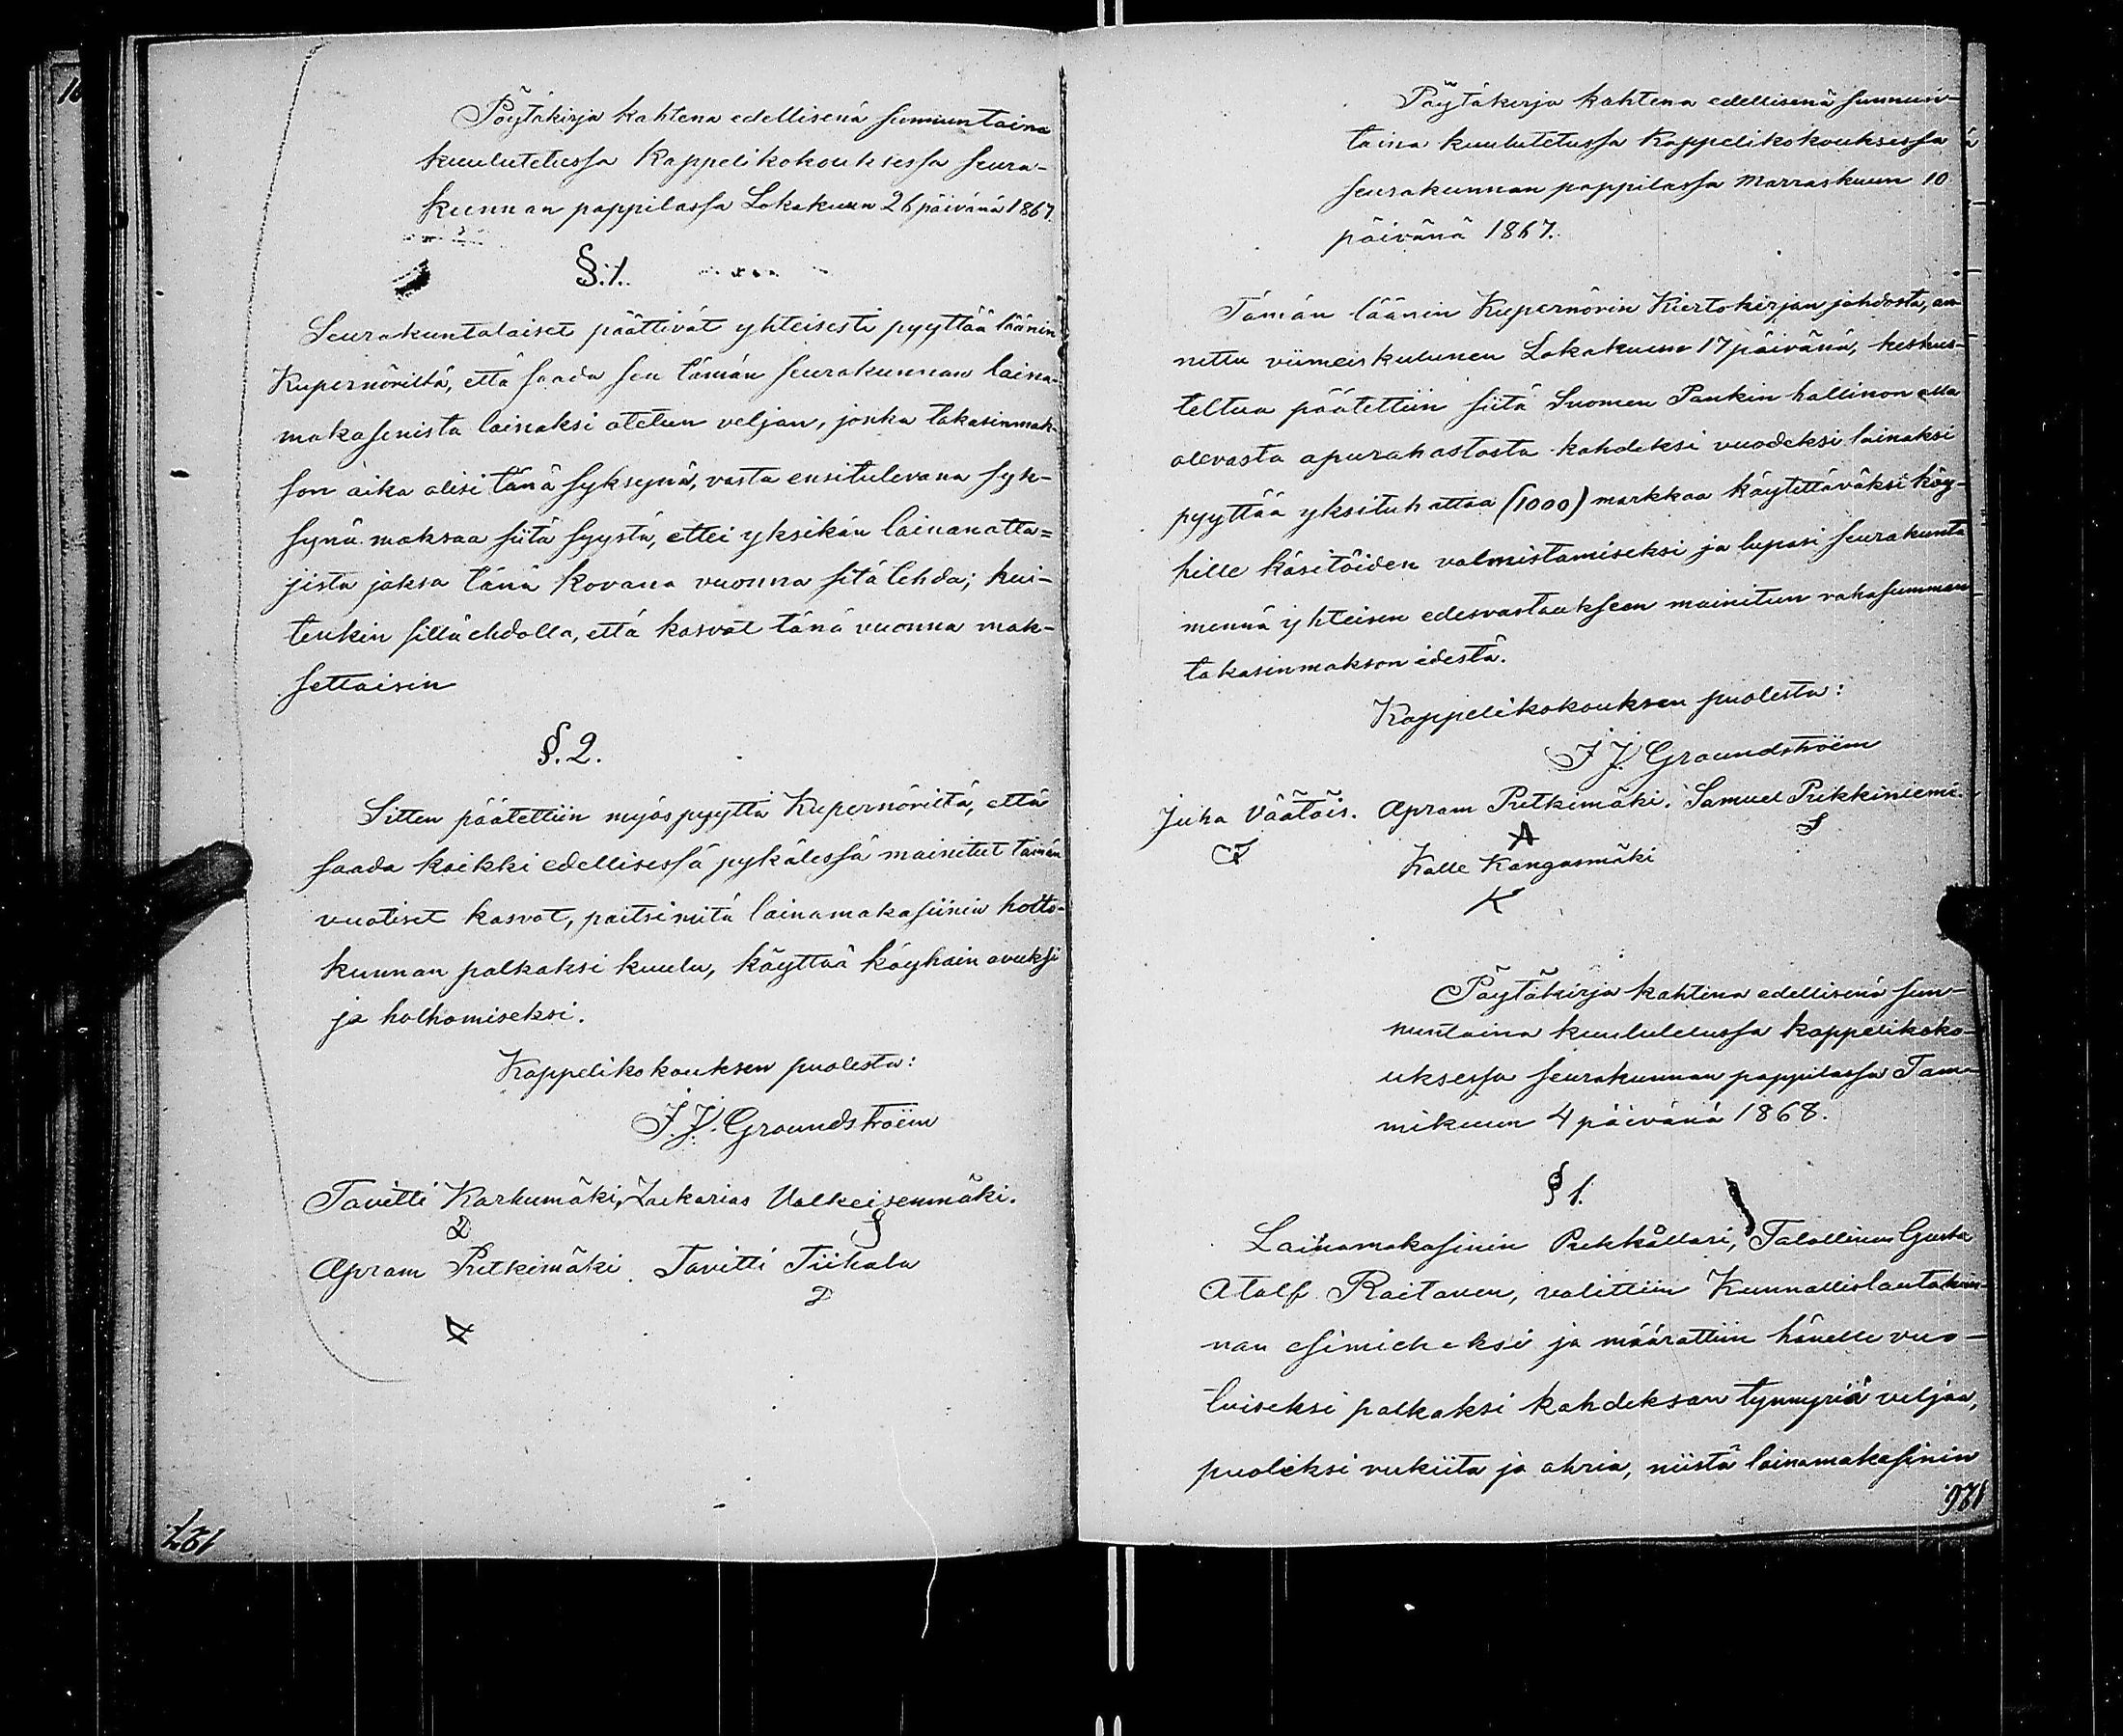 Pöytäkirja kahtena edellisenä sunnuntaina
kuulutetussa Kappelikokouksessa seura-
kunnan pappilassa Lokakuun 26 päivänä 1867.
§.1.
Seurakuntalaiset päättivät yhteisesti pyyttää läänin
Kupernöriltä, että saada sen tämän seurakunnan laina-
makasenista lainaksi otetun veljan, jonka takasinmak-
son aika olisi tänä syksynä, vasta ensitulevana syk-
synä maksaa siitä syystä, ettei yksikän lainanotta=
jista jaksa tänä kovana vuonna sitä tehdä; kui-
tenkin sillä ehdolla, että kasvot tänä vuonna mak-
settaisin
§.2.
Sitten päätettiin myös pyyttä Kupernöriltä, että
saada kaikki edellisessä pykälessä mainitut tämän
vuotiset kasvot, paitsi mitä lainamakasiinin hoito-
kunnan palkaksi kuulu, käyttää käyhäin avuksi
ja holhomiseksi.
Kappelikokouksen puolesta:
J. J. Groundstroëm
Tavitti Karhumäki, Zackarias Valkeisenmäki.
D S
Apram Pitkimäki. Tavitti Tiihala
D
A
127.
Pöytäkirja kahtena edellisenä sunnun-
taina kuulutetussa Kappelikokouksessa
seurakunnan pappilassa Marraskuun 10
päivänä 1867.
Tämän läänin Kupernörin Kiertokirjan johdosta, an-
nettu viimeiskulunen Lokakuun 17 päivänä, keskus-
teltua päätettiin siitä Suomen Pankin hallinon alla
olevasta apurahastosta kahdeksi vuodeksi lainaksi
pyyttää yksituhattaa (1000) markkaa käytettäväksi köy-
hille käsitöiden valmistamiseksi ja lupasi seurakunta
mennä yhteisen edesvastaukseen mainitun rahasumman
takasinmakson edestä.
Kappelikokouksen puolesta:
J J. Groundstroëm
Juha Väätäis. Apram Pitkimäki. Samuel Pikkiniemi.
J A S
Kalle Kangasmäki
K
Pöytäkirja kahtena edellisenä sun-
nuntaina kuulutetussa kappelikoko-
uksessa seurakunnan pappilassa Tam-
mikuun 4 päivänä 1868.
§ 1.
Lainamakasinin Pukhållari, Talollinen Gusta
Atolf Raitanen, valittiin Kunnallislautakun-
nan esimieheksi ja määrattiin hänelle vuo-
tuiseksi palkaksi kahdeksan tynnyriä veljaa,
puoleksi rukiita ja ohria, niistä lainamakasinin
126